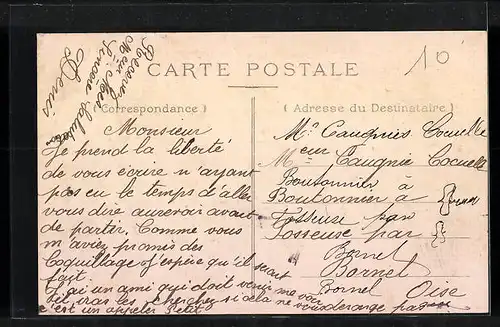 10
Recevez
Mes Salutation
Sincere
CARTE POSTALE
(Correspondance)
Monsieur
Je prend la liberté
de vous écrire n'ayant
pas eu le temps d'aller
vous dire aurevoir avant
de partir. Comme vous
m'aviez promis des
Coquillage j'espère qu'il serait
fait
J'ai un ami qui doit venir me voir
iras les cherchez si cela ne vous dérange pas
c'est un appeler Petit
(Adresse du Destinataire)
Mr Caugnies Cocuelle
Meur Caugnie Cocuelle
Boutonnier à
Boutonnier à
Fosseuse par
Fosseuse par
Bornel
Bornel
Bornel Oise